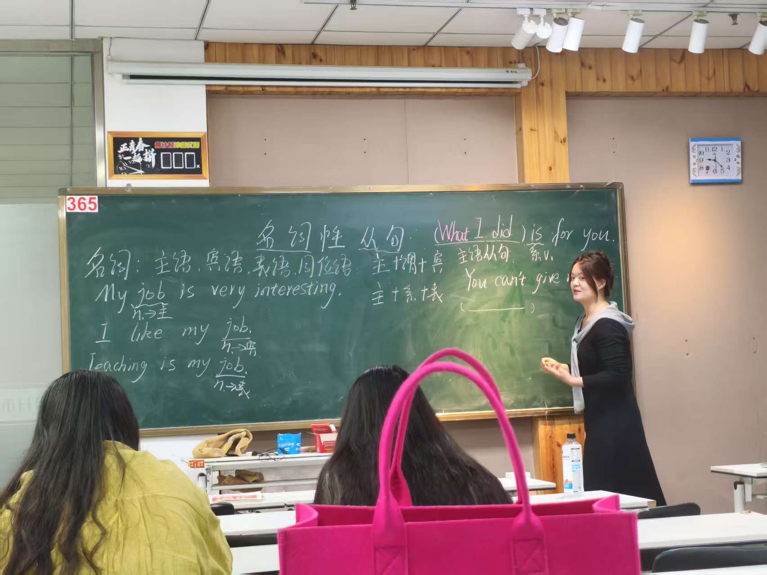 正青春
一起拼
365
名词性从句
(What I did) is for you.
名词: 主语. 宾语. 表语. 同位语
主+谓+宾
主语从句 系v.
My job is very interesting.
n.→主
主+系+表
You can't give
(          )
I like my job.
n.→宾
Teaching is my job.
n.→表